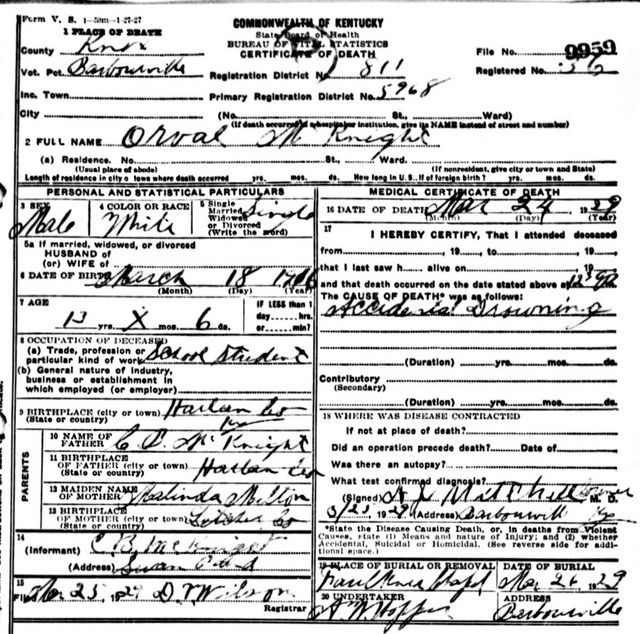 Form V. S. 1-50m-1-27-27
COMMONWEALTH OF KENTUCKY
State Board of Health
BUREAU OF VITAL STATISTICS
CERTIFICATE OF DEATH
1 PLACE OF DEATH
County Knox
File No. 9959
Vot. Pct. Barbourville
Registration District No. 811
Registered No. 36
Inc. Town
Primary Registration District No. 5968
City (No. St., Ward)
(If death occurred in a hospital or institution, give its NAME instead of street and number)
2 FULL NAME Orval McKnight
(a) Residence. No. St., Ward.
(Usual place of abode) (If nonresident, give city or town and State)
Length of residence in city or town where death occurred yrs. mos. ds. How long in U. S., if of foreign birth? yrs. mos. ds.
PERSONAL AND STATISTICAL PARTICULARS
3 SEX Male
4 COLOR OR RACE White
5 Single Married Widowed or Divorced (Write the word) Single
5a If married, widowed, or divorced
HUSBAND of
(or) WIFE of
6 DATE OF BIRTH March 18
(Month) (Day) (Year)
7 AGE
13 yrs. X mos. 6 ds.
IF LESS than 1 day hrs. or min.?
8 OCCUPATION OF DECEASED
(a) Trade, profession or particular kind of work School Student
(b) General nature of industry, business or establishment in which employed (or employer)
9 BIRTHPLACE (city or town) Harlan Co
(State or country) Ky
PARENTS
10 NAME OF FATHER McKnight
11 BIRTHPLACE OF FATHER (city or town) Harlan Co
(State or country)
12 MAIDEN NAME OF MOTHER Milton
13 BIRTHPLACE OF MOTHER (city or town) Letcher Co
(State or country)
14
(Informant) C B McKnight
(Address) Swan Pond
15
Filed Mar 25 1929 Wilson
Registrar
MEDICAL CERTIFICATE OF DEATH
16 DATE OF DEATH Mar 24 1929
(Month) (Day) (Year)
17
I HEREBY CERTIFY, That I attended deceased
from , 19 to , 19
that I last saw h alive on , 19
and that death occurred on the date stated above at
The CAUSE OF DEATH* was as follows:
Accidental Drowning
(Duration) yrs. mos. ds.
Contributory
(Secondary)
(Duration) yrs. mos. ds.
18 WHERE WAS DISEASE CONTRACTED
If not at place of death?
Did an operation precede death? Date of
Was there an autopsy?
What test confirmed diagnosis?
(Signed) Mitchell M. D.
3/25 1929 (Address) Barbourville Ky
*State the Disease Causing Death, or, in deaths from Violent
Causes, state (1) Means and nature of Injury; and (2) whether
Accidental, Suicidal or Homicidal. (See reverse side for addi-
tional space.)
19 PLACE OF BURIAL OR REMOVAL DATE OF BURIAL
Chapel Mar 26 1929
20 UNDERTAKER ADDRESS
Barbourville